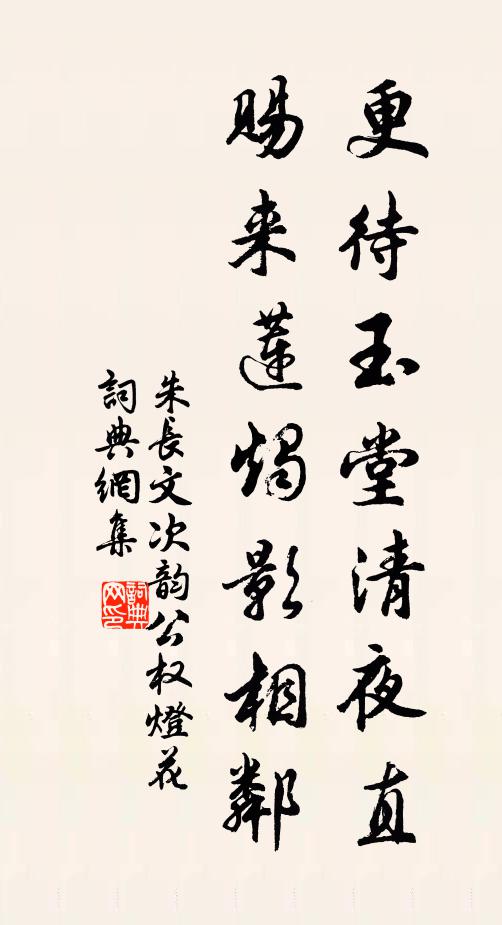 更待玉堂清夜直
賜来蓮燭影相鄰
朱長文次韵公权燈花
詞典網集
詞典网印